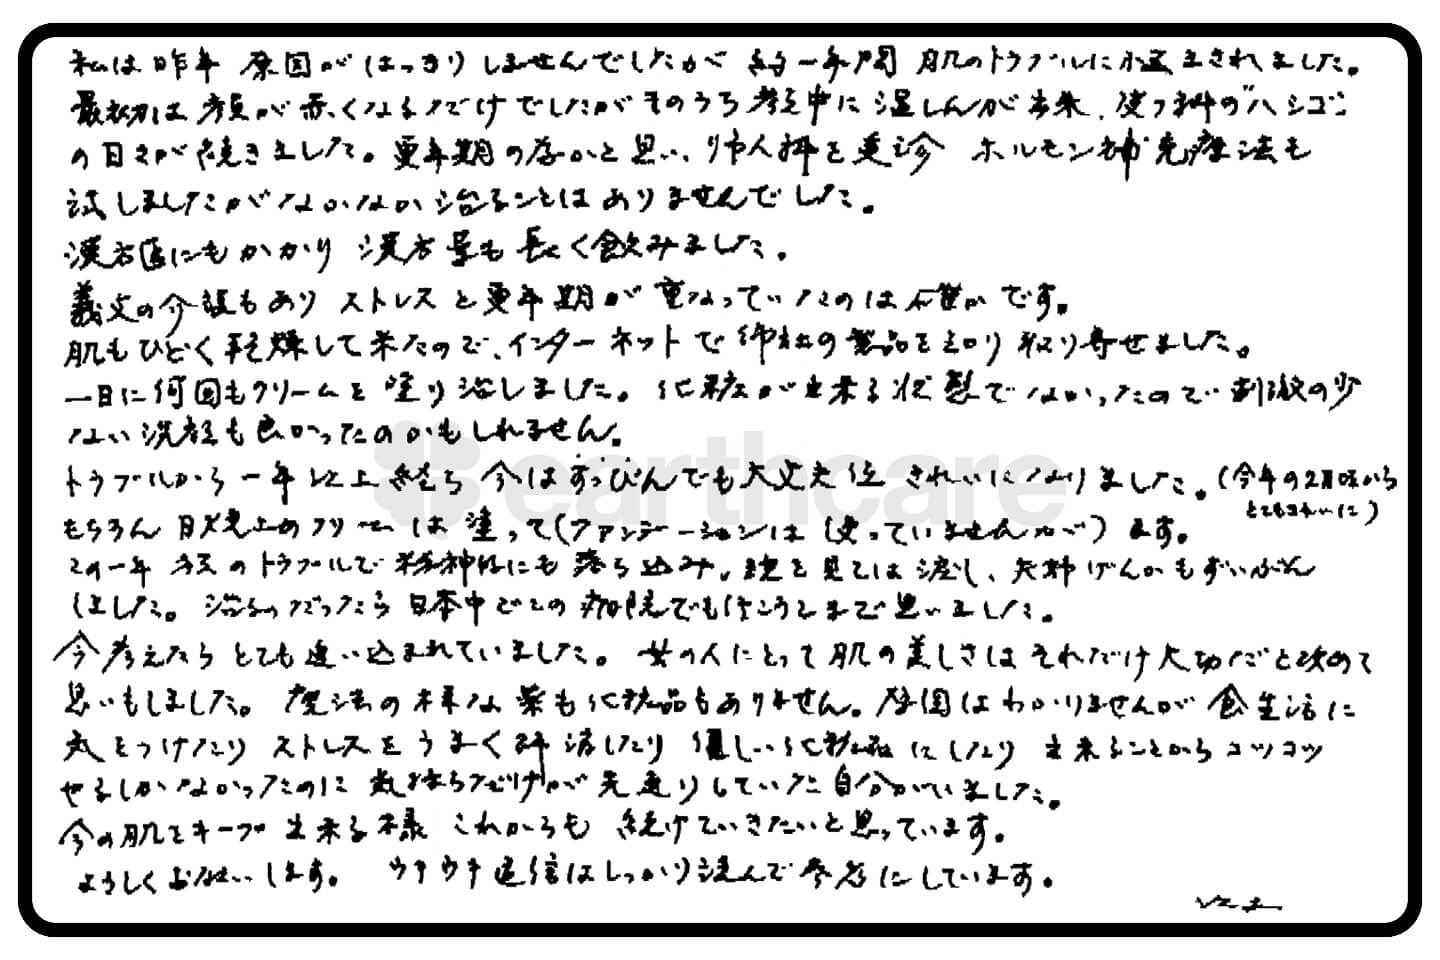 私は昨年 原因がはっきりしませんでしたが 約一年間 肌のトラブルに悩まされました。
最初は顔が赤くなるだけでしたがそのうち顔中に湿しんが出来、皮フ科の"ハシゴ"
の日々が続きました。更年期の為かと思い、婦人科を受診 ホルモン補充療法も
試しましたがなかなか治ることはありませんでした。
漢方医にもかかり 漢方薬も長く飲みました。
義父の介護もあり ストレスと更年期が重なっていたのは確かです。
肌もひどく乾燥して来たので、インターネットで御社の製品を知り取り寄せました。
一日に何回もクリームを塗り治しました。化粧が出来る状態でなかったので刺激の少
ない洗顔も良かったのかもしれません。
トラブルから一年以上経ち 今はすっぴんでも大丈夫な位 きれいになりました。(今年の2月頃から
とてもきれいに)
もちろん 日焼止めクリームは塗って(ファンデーションは使っていませんが)ます。
この一年 顔のトラブルで精神的にも落ち込み、鏡を見ては涙し、夫婦げんかもずいぶん
しました。治るのだったら日本中どこの病院でも行こうとまで思いました。
今考えたらとても追い込まれていました。女の人にとって肌の美しさはそれだけ大切だと改めて
思いもしました。魔法の様な薬も化粧品もありません。原因はわかりませんが食生活に
気をつけたり ストレスをうまく解消したり 優しい化粧品にしたり 出来ることからコツコツ
やるしかなかったのに気持ちだけが先走りしていた自分がいました。
今の肌をキープ出来る様 これからも 続けていきたいと思っています。
よろしくお願いします。 ウキウキ通信はしっかり読んで参考にしています。
earthcare